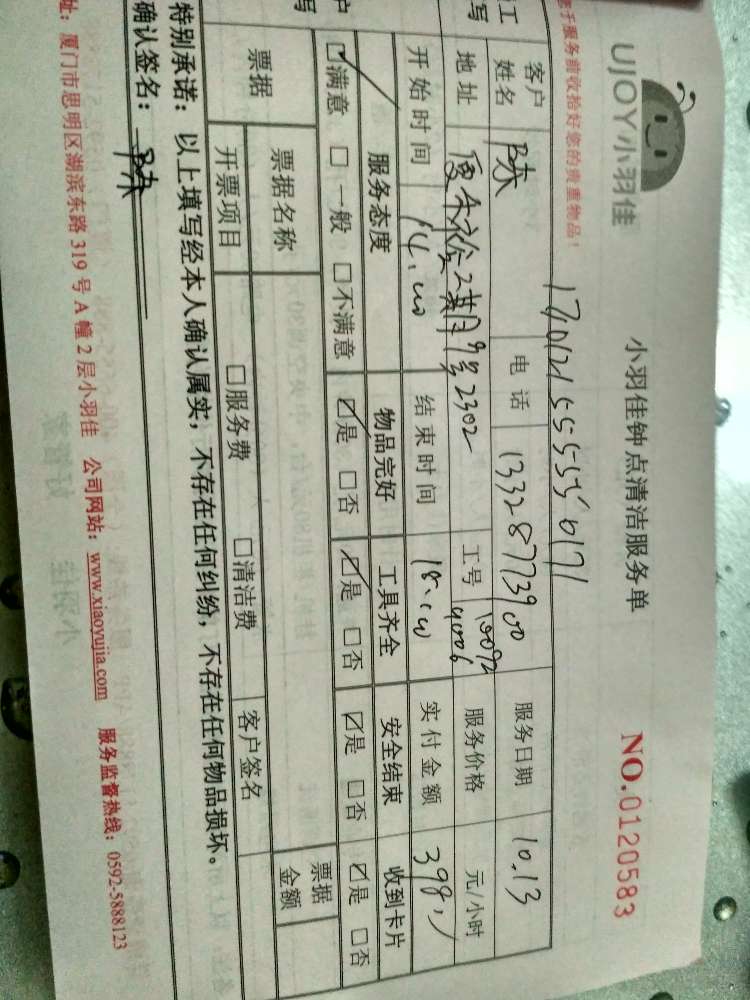 UJOY小羽佳
小羽佳钟点清洁服务单
NO.0120583
您于服务前收拾好您的贵重物品!
客户姓名 电话 13328773900 服务日期 10.13
地址 2302 工号 服务价格 元/小时
开始时间 14:00 结束时间 18:00 实付金额 398
服务态度 物品完好 工具齐全 安全结束 收到卡片
☑满意 □一般 □不满意 ☑是 □否 ☑是 □否 ☑是 □否 ☑是 □否
票据 票据名称 票据金额
开票项目 □服务费 □清洁费 客户签名
特别承诺:以上填写经本人确认属实,不存在任何纠纷,不存在任何物品损坏。
确认签名:
址:厦门市思明区湖滨东路 319 号 A 幢 2 层小羽佳 公司网站:www.xiaoyujia.com 服务监督热线:0592-5888123